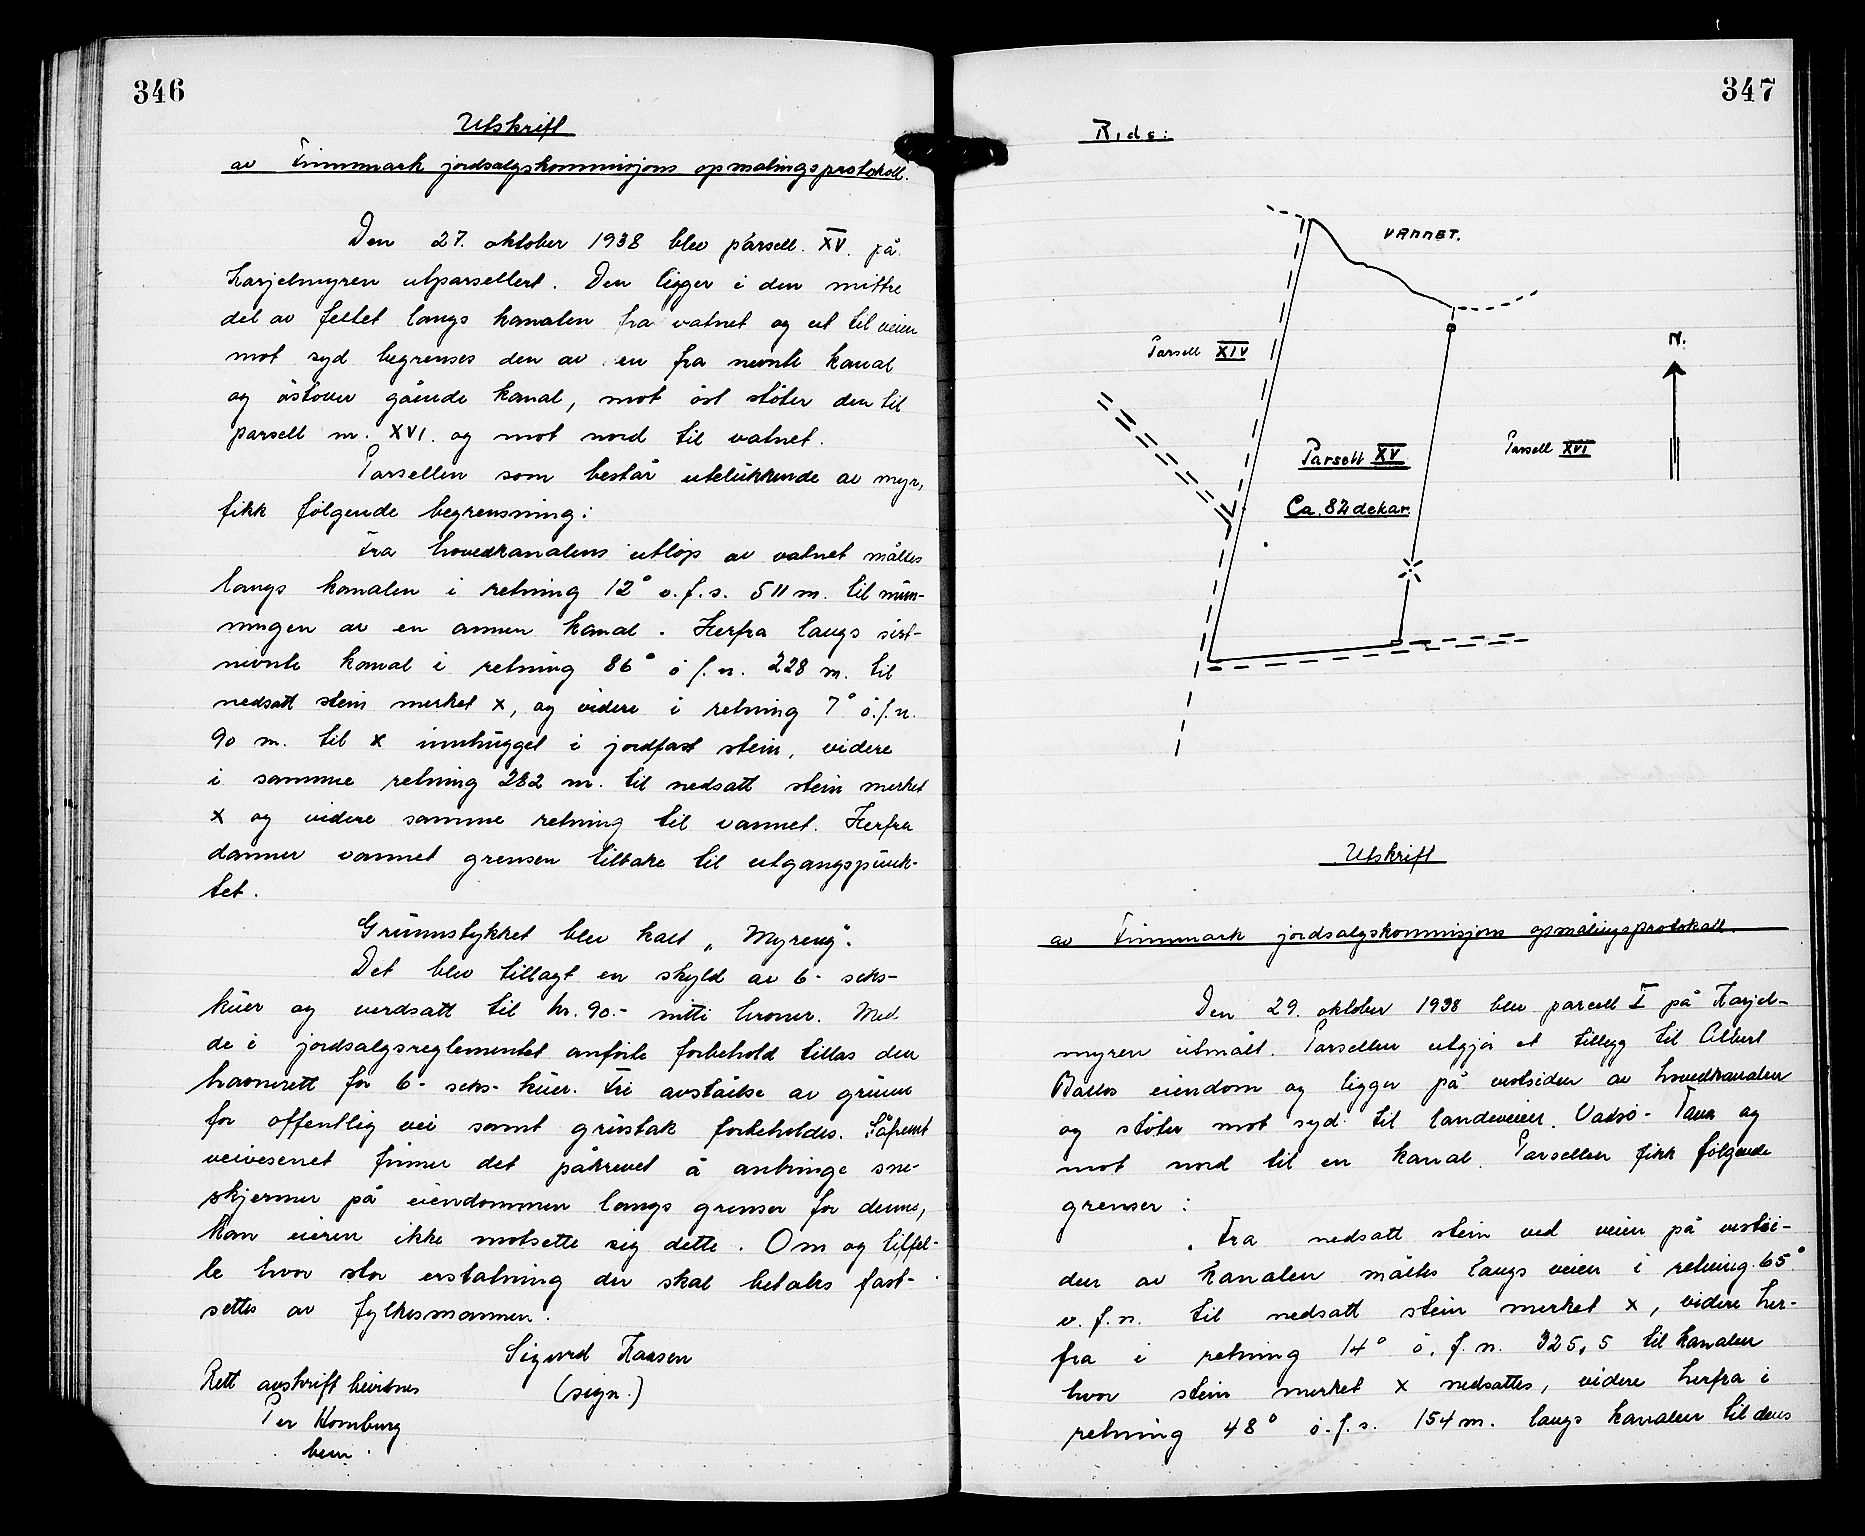 346
Utskrift
av Finnmark jordsalgskommisjons opmålingsprotokoll.
Den 27. oktober 1938 blev parsell XV. på
Karjelmyren utparsellert. Den ligger i den mittre
del av feltet langs kanalen fra vatnet og ut til veien
mot syd begrenses den av en fra nevnte kanal
og östover gående kanal, mot öst stöter den til
parsell nr. XVI. og mot nord til vatnet.
Parsellen som består utelukkende av myr,
fikk fölgende begrensning:
Fra hovedkanalens utlöp av vatnet måltes
langs kanalen i retning 12° v.f.s. 511 m. til mün-
ningen av en annen kanal. Herfra langs sist-
nevnte kanal i retning 86° ö.f.n. 228 m. til
nedsatt stein merket x, og videre i retning 7° ö.f.n.
90 m. til x innhugget i jordfast stein, videre
i samme retning 282 m. til nedsatt stein merket
x og videre samme retning til vannet. Herfra
danner vannet grensen tilbake til utgangspunk-
tet.
Grunnstykket blev kalt „Myreng".
Det blev tillagt en skyld av 6- seks-
küer og verdsatt til kr. 90.- nitti kroner. Med
de i jordsalgsreglementet anförte forbehold tillas den
havnerett for 6- seks- küer. Fri avståelse av grunn
for offentlig vei samt grustak forbeholdes. Såfremt
veivesenet finner det påkrevet å anbringe sne-
skjermer på eiendommen langs grenser for denne,
kan eieren ikke motsette sig dette. Om og tilfel-
le hvor stor erstatning der skal betales fast-
settes av fylkesmannen.
Sigurd Kaasen
(sign.)
Rett avskrift bevitnes
Per Homburg
bem.
347
Rids:
VANNET.
Parsell XIV
N.
Parsell XV
Parsell XVI
Ca. 82 dekar.
Utskrift
av Finnmark jordsalgskommisjons opmålingsprotokoll.
Den 29. oktober 1938 blev parcell I på Karjel-
myren utmålt. Parsellen utgjör et tillegg til Albert
Ballos eiendom og ligger på vestsiden av hovedkanalen
og stöter mot syd til landeveien Vadsö - Tana og
mot nord til en kanal. Parsellen fikk fölgende
grenser:
Fra nedsatt stein ved veien på vestsi-
den av kanalen måltes langs veien i retning 65°
v.f.n. til nedsatt stein merket x, videre her-
fra i retning 14° ö.f.n. 325,5 til kanalen
hvor stein merket x nedsattes, videre herfra i
retning 48° ö.f.s. 154 m. langs kanalen til dens